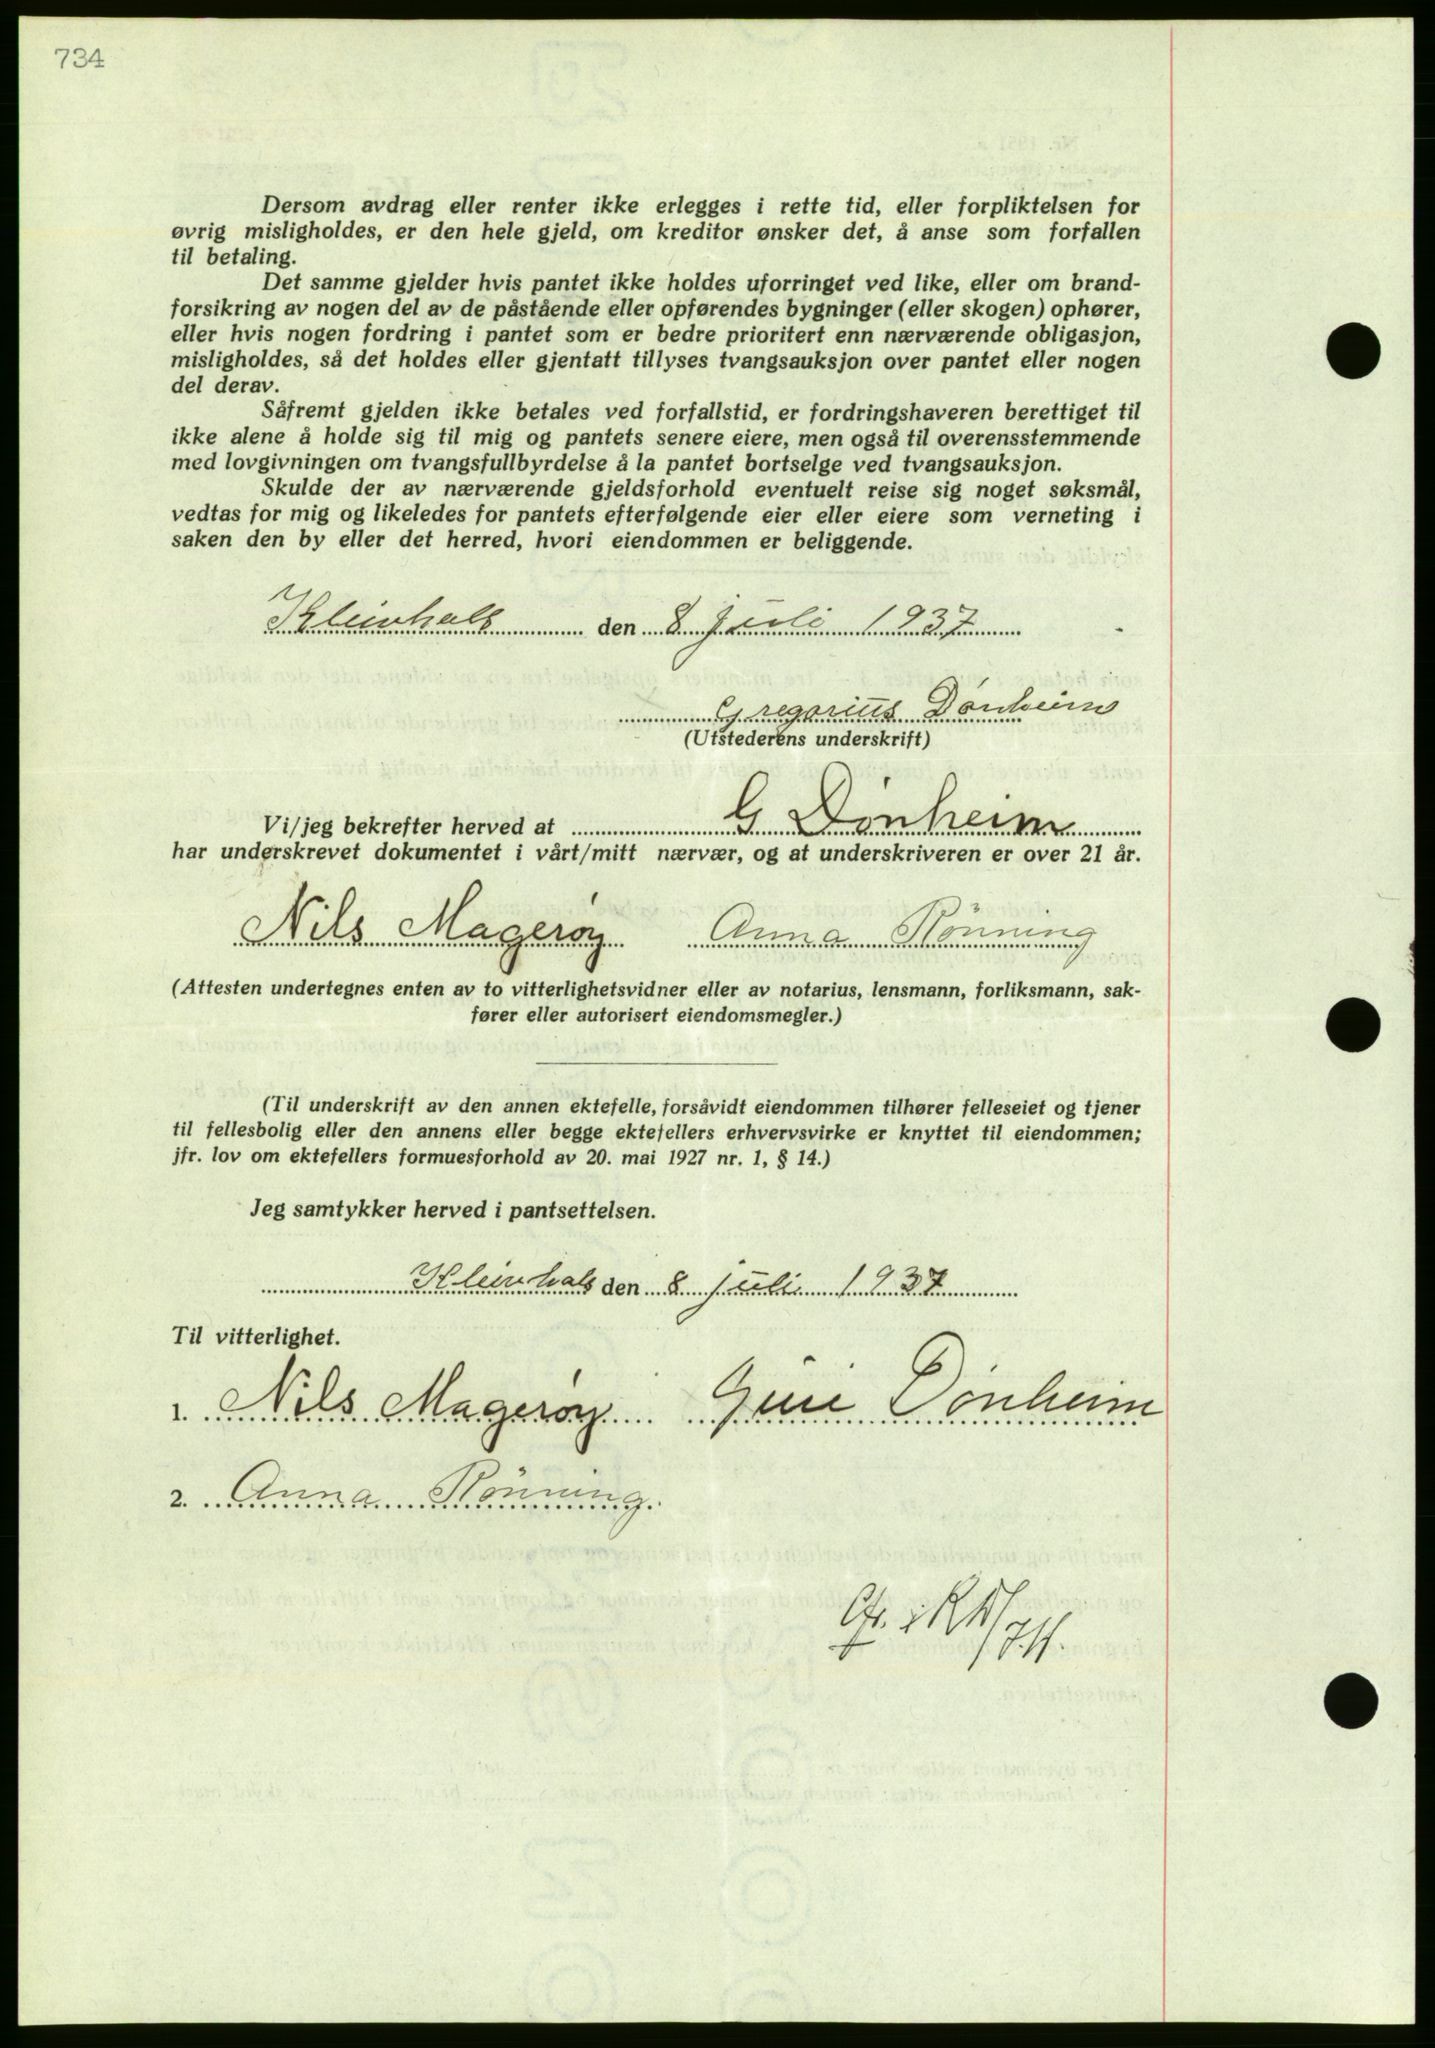 734
Dersom avdrag eller renter ikke erlegges i rette tid, eller forpliktelsen for
øvrig misligholdes, er den hele gjeld, om kreditor ønsker det, å anse som forfallen
til betaling.
Det samme gjelder hvis pantet ikke holdes uforringet ved like, eller om brand-
forsikring av nogen del av de påstående eller opførendes bygninger (eller skogen) ophører,
eller hvis nogen fordring i pantet som er bedre prioritert enn nærværende obligasjon,
misligholdes, så det holdes eller gjentatt tillyses tvangsauksjon over pantet eller nogen
del derav.
Såfremt gjelden ikke betales ved forfallstid, er fordringshaveren berettiget til
ikke alene å holde sig til mig og pantets senere eiere, men også til overensstemmende
med lovgivningen om tvangsfullbyrdelse å la pantet bortselge ved tvangsauksjon.
Skulde der av nærværende gjeldsforhold eventuelt reise sig noget søksmål,
vedtas for mig og likeledes for pantets efterfølgende eier eller eiere som verneting i
saken den by eller det herred, hvori eiendommen er beliggende.
Kleivhals den 8 juli 1937
Gregorius Dønheim
(Utstederens underskrift)
Vi/jeg bekrefter herved at G Dønheim
har underskrevet dokumentet i vårt/mitt nærvær, og at underskriveren er over 21 år.
Nils Magerøy Anna Rönning
(Attesten undertegnes enten av to vitterlighetsvidner eller av notarius, lensmann, forliksmann, sak-
fører eller autorisert eiendomsmegler.)
(Til underskrift av den annen ektefelle, forsåvidt eiendommen tilhører felleseiet og tjener
til fellesbolig eller den annens eller begge ektefellers erhvervsvirke er knyttet til eiendommen;
jfr. lov om ektefellers formuesforhold av 20. mai 1927 nr. 1, § 14.)
Jeg samtykker herved i pantsettelsen.
Kleivhals den 8 juli 1937
Til vitterlighet.
1. Nils Magerøy Guri Dönheim
2. Anna Rönning.